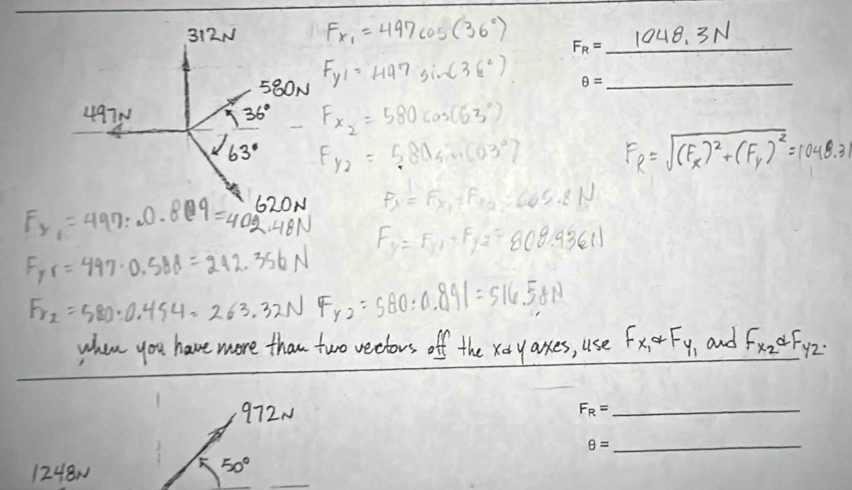 312N
580N
497N
36°
63°
620N
Fx₁ = 497 cos(36°)
Fy1 = 497 sin(36°)
Fx₂ = 580 cos(63°)
Fy₂ = 580 sin(63°)
FR = 1048.3N
θ =
FR = √(Fx)² + (Fy)² = 1048.31
Fx₁ = 497·0.809 = 402.48N
Fx = Fx₁ + Fx₂ = 665.8N
Fy = Fy₁ + Fy2 = 808.936N
Fy1 = 497·0.588 = 292.356N
Fx₂ = 580·0.454 = 263.32N Fy2 = 580·0.891 = 516.58N
when you have more than two vectors off the x&y axes, use Fx₁ & Fy₁ and Fx₂ & Fy2.
972N
50°
1248N
FR =
θ =